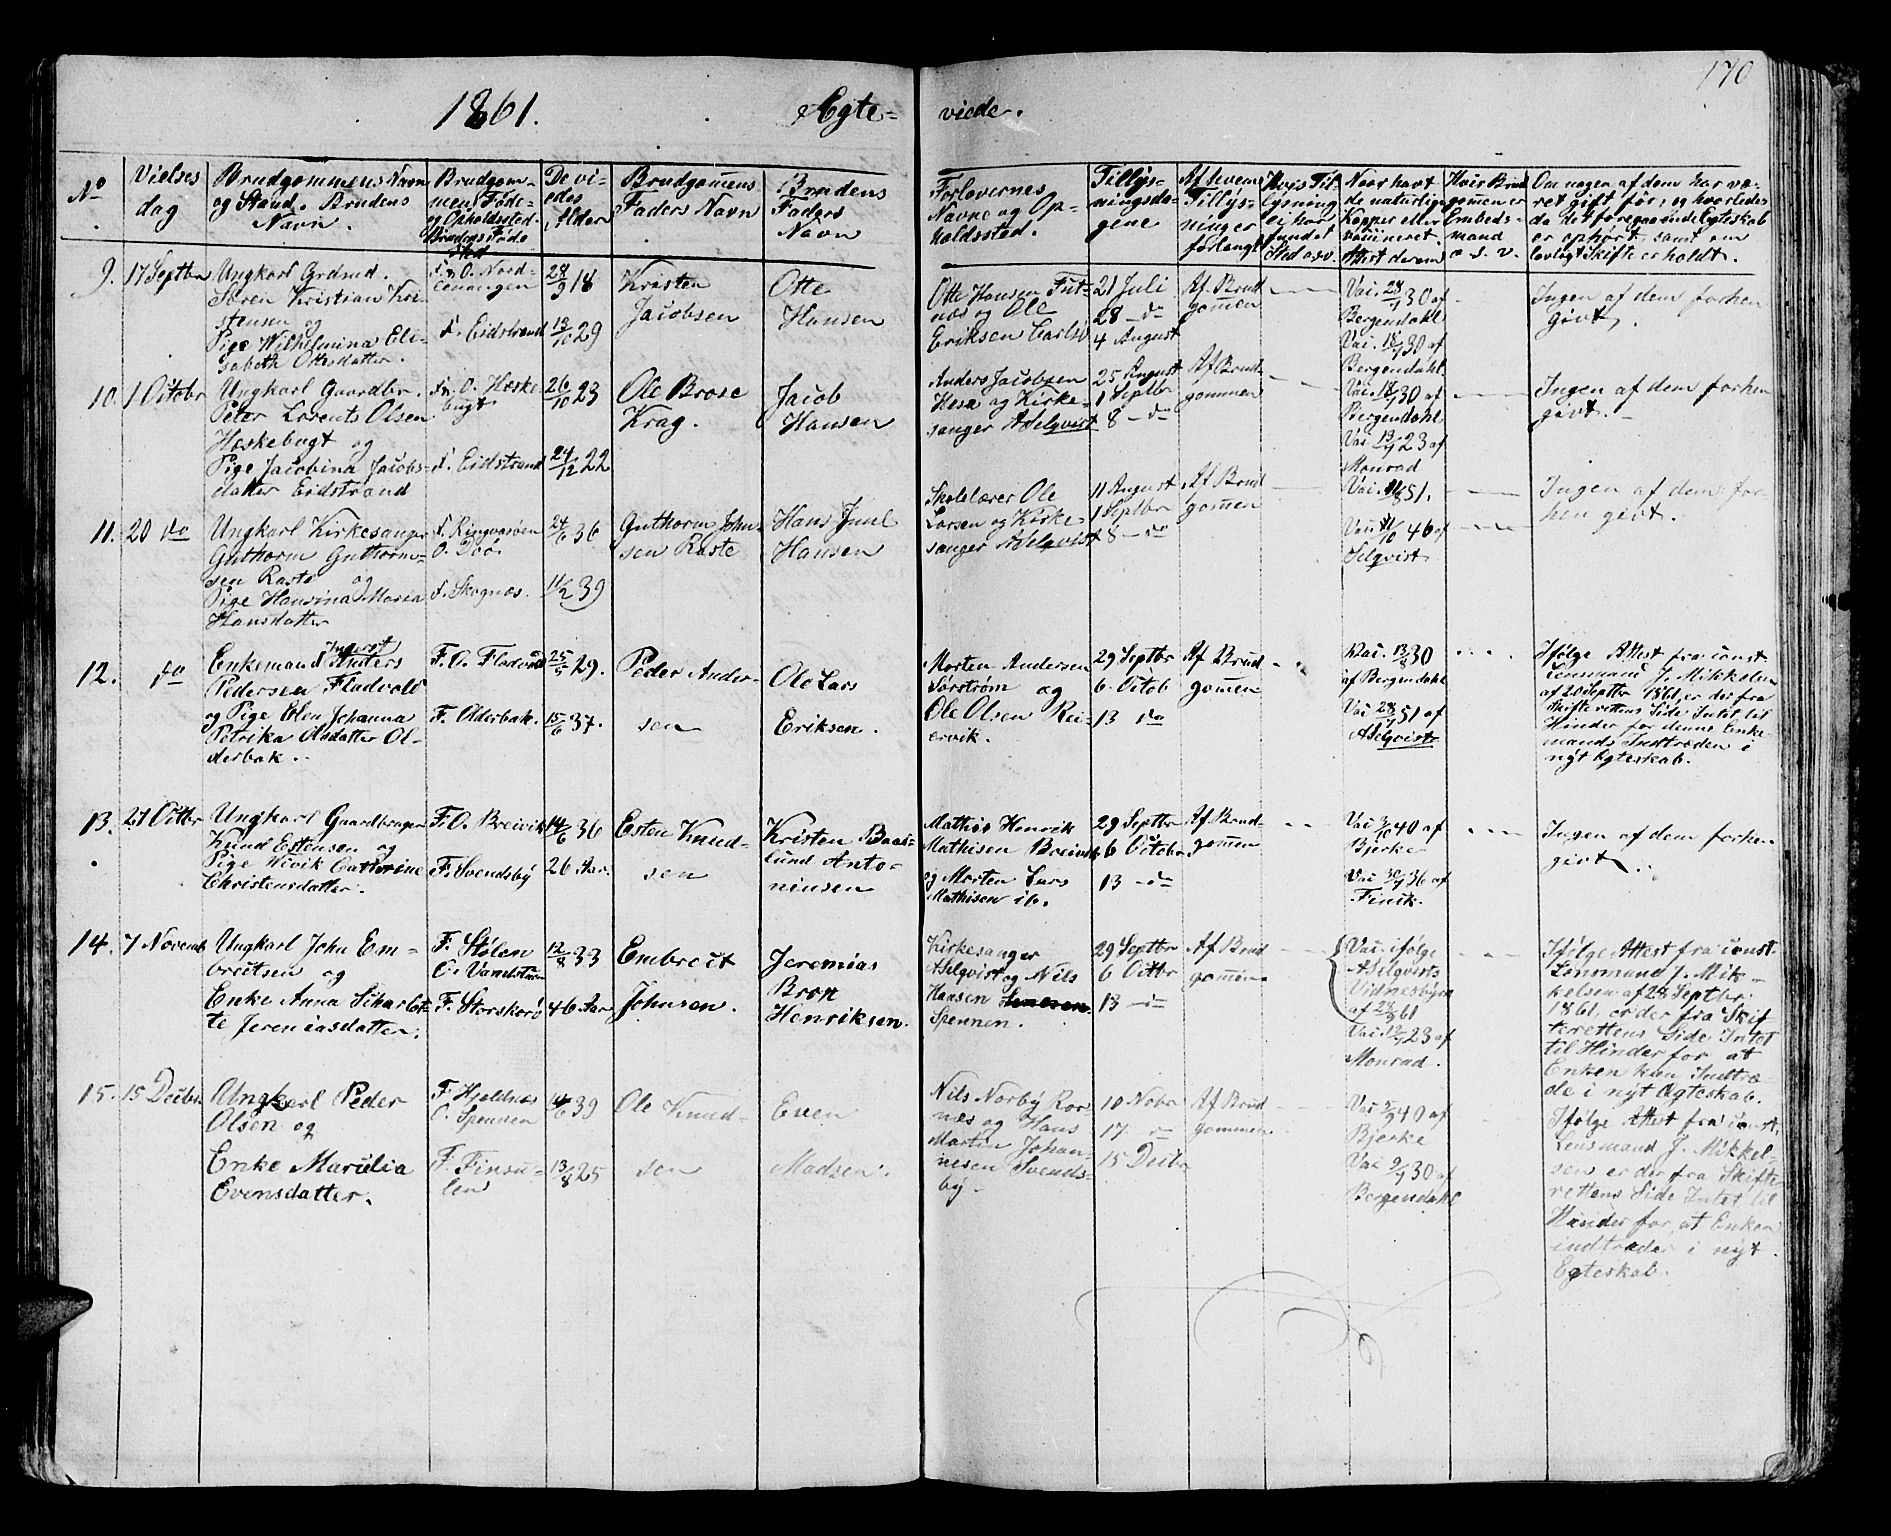 170
1861. Ægte- viede.
No
Vielses dag
Brudgommens Navn og Stand. Brudens Navn.
Brudgommens Føde- og Opholdssted. Brudens Føde Sted
De viedes Alder
Brudgomens Faders Navn
Brudens Faders Navn
Forlovernes Navne og Opholdssted.
Tillysningsdagene
Af hvem Tillysninger forlangt
Hvis Tillysning ei har fundet Sted o.s.v.
Naar havt de naturlige Kopper eller vaccineret. Attest derom
Hvis Brudgomen er Embedsmand o.s.v.
Om nogen af dem har været gift før, og hvorledes da det foregaaende Egteskab er ophørt, samt om lovlogt Skifte er holdt.
9. 17 Septbr
Ungkarl Grdmd.
Søren Kristian Kri-
stensen og
Pige Wilhelmina Eli-
sabeth Ottesdatter.
F. O. Nord-
lenangen
F. Eidstrand
28/9 18
13/10 29
Kristen
Jacobsen
Otte
Hansen
Otte Hansen Fut-
næs og Ole
Eriksen Carlso
21 Juli
28 - do
4 August
Af Brud
gomen
Vai. 28/7 30 af
Bergendahl
Vai. 18/7 30 af
Bergendahl
Ingen af dem forhen
givt.
10. 1 Octobr
Ungkarl Gaardbr.
Peter Lorents Olsen
Hæskebugt og
Pige Jacobina Jacobs-
datter Eidstrand
F. O. Hæske
bugt
F. Eidstrand
26/10 23
24/12 22
Ole Brose
Krag.
Jacob
Hansen
Anders Jacobsen
Hesa og Kirke-
sanger Aselqvist
25 August
1 Septbr
8 - do
Af Brud
gommen
Vai. 18/7 30 af
Bergendahl
Vai 13/7 23 af
Monrad
Ingen af dem forhen
givt. -
11. 20 do
Ungkarl Kirkesanger
Guthorm Guthorm-
sen Raste og
Pige Hansina Maria
Hansdatter
F. Ringvasøen
O.
F. Skognæs.
24/6 36
11/2 39
Guthorm John-
sen Raste
Hans Juul
Hansen
Skolelærer Ole
Larsen og Kirke
sanger Aselqvist
11 August
1 Septbr
8 - do
Af Brud
gomen
Vai. 51.
Vai 46 af
Selqvist
Ingen af dem for-
hen givt.
12. do
Enkemand Anders
Pedersen Fladvold
og Pige Elen Johanna
Petrika Olsdatter Ol-
derbak.
F. O. Fladvold
F. Olderbak.
25/5 29.
15/6 37.
Peder Ander-
sen
Ole Lars
Eriksen.
Morten Andersen
Sørstrøm og
Ole Olsen Rei-
ervik.
29 Septbr
6. Octob
13 do
Af Brud
gomen
Vai. 13/8 30
af Bergendahl
Vai 28/7 51 af
Aselqvist
Ifølge Attest fra const.
Lensmand J. Mikkelsen
af 20 Septbr 1861, er der fra
Skifterettens Side Intet til
Hinder for denne Enke
mands Indtræden i
nyt Ægteskab.
13. 27 Octbr
Ungkarl Gaardbruger
Knud Estensen og
Pige Hivik Cathrine
Christensdatter.
F. O. Breivik
F. Svendsby
14/6 36
26 Aar
Esten Knud-
sen
Kristen Baas-
lund Anto-
niusen
Mathis Henrik
Mathisen Breivik
og Morten Lars
Mathisen ib.
29 Septbr
6 Octobr
13 - do
Af Brud-
gomen
Vai 3/10 40 af
Bjerke
Vai 30/7 36 af
Finck.
Ingen af dem forhen
givt.
14. 7 Novemb
Ungkarl John Em-
bretsen og
Enke Anna Scharlot-
te Jeremiasdatter.
F. Stølen
O.
F. Storskorø
12/8 33
46 Aar
Embret
Johnsen.
Jeremias
Bror
Henriksen.
Kirkesanger
Aselqvist og Nils
Hansen
Spennen.
29 Septbr
6 Octbr
13 - do
Af Brud
gomen
Vai. ifølge
Aselqvists
Vidnesbyrd
af 28/9 61
Vai. 12/7 23 af
Monrad.
Ifølge Attest fra const.
Lensmand J. Mik-
kelsen af 28 Septbr
1861, er der fra Skif
terettens Side Intet
til Hinder for at
Enken kan Indtræ-
de i nyt Ægteskab.
15. 15 Decbr.
Ungkarl Peder
Olsen og
Enke Marselia
Evensdatter.
F. Hjeldnæs
O. Spennen
F. Finsu-
len
14/6 39
13/8 25
Ole Knud-
sen
Even
Madsen.
Nils Norby Ror-
næs og Hans
Martin Johan-
nesen Svends-
by.
10 Nobr
17. do
15 Decbr
Af Brud
gommen
Vai 5/9 40 af
Bjerke
Vai 9/7 30 af
Bergendahl
Ifølge Attest fra const.
Lensmand J. Mikkel-
sen er der fra Skifte
rettens Side Intet til
Hinder for, at Enken
indtræder i nyt
Egteskab.